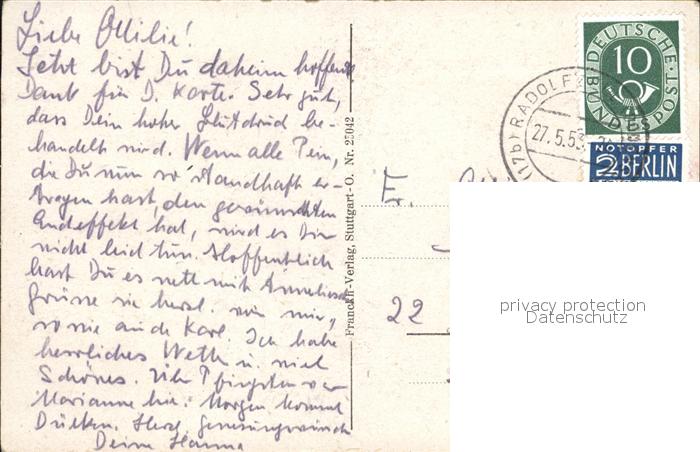 Liebe Ottilie!
Jetzt bist Du daheim hoffentl.
Dank für D. Karte. Sehr gut,
dass Dein hoher Blutdruck be-
handelt wird. Wenn alle Pein,
die Du nun so standhaft er-
tragen hast, den gewünschten
Endeffekt hat, wird es Dir
nicht leid tun. Hoffentlich
hast Du es nett mit Anneliese
grüsse sie herzl. von mir,
sowie auch Karl. Ich habe
herrliches Wetter u. viel
Schönes. Über Pfingsten war
Marianne hier. Morgen kommt
Herzl. Genesungswünsche
Deine Hanna
Franckh-Verlag, Stuttgart-O. Nr. 25042
22
DEUTSCHE BUNDESPOST
10
(17b) RADOLFZ
27.5.53
NOTOPFER
2 BERLIN
privacy protection
Datenschutz